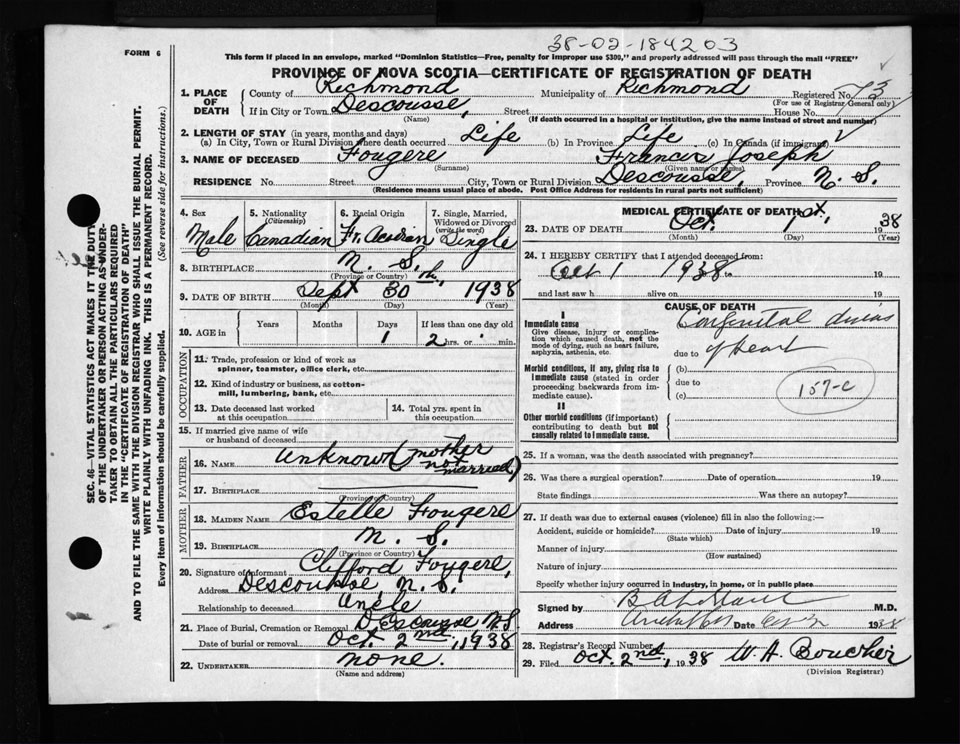 38-02-184203
FORM 6
This form if placed in an envelope, marked "Dominion Statistics—Free, penalty for improper use $300," and properly addressed will pass through the mail "FREE"
PROVINCE OF NOVA SCOTIA—CERTIFICATE OF REGISTRATION OF DEATH
1. PLACE OF DEATH County of Richmond Municipality of Richmond Registered No. 73
(For use of Registrar General only)
If in City or Town Descousse, Street House No.
(Name) (If death occurred in a hospital or institution, give the name instead of street and number)
2. LENGTH OF STAY (in years, months and days)
(a) In City, Town or Rural Division where death occurred Life (b) In Province Life (c) In Canada (if immigrant)
3. NAME OF DECEASED Fougere Francis Joseph
(Surname) (Given name or names)
RESIDENCE No. Street City, Town or Rural Division Descousse, Province N. S.
(Residence means usual place of abode. Post Office Address for residents in rural parts not sufficient)
SEC. 46—VITAL STATISTICS ACT MAKES IT THE DUTY
OF THE UNDERTAKER OR PERSON ACTING AS UNDER-
TAKER TO OBTAIN ALL THE PARTICULARS REQUIRED
IN THE "CERTIFICATE OF REGISTRATION OF DEATH"
AND TO FILE THE SAME WITH THE DIVISION REGISTRAR WHO SHALL ISSUE THE BURIAL PERMIT.
WRITE PLAINLY WITH UNFADING INK. THIS IS A PERMANENT RECORD.
Every item of information should be carefully supplied. (See reverse side for instructions.)
4. Sex 5. Nationality 6. Racial Origin 7. Single, Married,
(Citizenship) Widowed or Divorced
(write the word)
Male Canadian Fr. Acadian Single
8. BIRTHPLACE N. S.
(Province or Country)
9. DATE OF BIRTH Sept 30 th, 1938
(Month) (Day) (Year)
10. AGE in Years Months Days If less than one day old
1 2 hrs. or min.
OCCUPATION
11. Trade, profession or kind of work as
spinner, teamster, office clerk, etc.
12. Kind of industry or business, as cotton-
mill, lumbering, bank, etc.
13. Date deceased last worked 14. Total yrs. spent in
at this occupation this occupation
15. If married give name of wife
or husband of deceased
FATHER
16. NAME Unknown (mother not married)
17. BIRTHPLACE
(Province or Country)
MOTHER
18. MAIDEN NAME Estelle Fougere
19. BIRTHPLACE N. S.
(Province or Country)
20. Signature of informant Clifford Fougere,
Address Descousse, N. S.
Relationship to deceased Uncle
21. Place of Burial, Cremation or Removal Descousse N.S.
Date of burial or removal Oct. 2nd, 1938
22. UNDERTAKER none.
(Name and address)
MEDICAL CERTIFICATE OF DEATH
23. DATE OF DEATH Oct. 1st, 1938
(Month) (Day) (Year)
24. I HEREBY CERTIFY that I attended deceased from:
Oct 1 1938 to 19
and last saw h alive on 19
CAUSE OF DEATH
I
Immediate cause
Give disease, injury or complica-
tion which caused death, not the
mode of dying, such as heart failure,
asphyxia, asthenia, etc.
Congenital
due to of heart
Morbid conditions, if any, giving rise to
immediate cause (stated in order
proceeding backwards from im-
mediate cause).
(b)
due to
(c)
157-c
II
Other morbid conditions (if important)
contributing to death but not
causally related to immediate cause.
25. If a woman, was the death associated with pregnancy?
26. Was there a surgical operation? Date of operation 19
State findings Was there an autopsy?
27. If death was due to external causes (violence) fill in also the following:—
Accident, suicide or homicide? Date of injury 19
(State which)
Manner of injury
(How sustained)
Nature of injury
Specify whether injury occurred in industry, in home, or in public place
Signed by M.D.
Address Date 1938
28. Registrar's Record Number
29. Filed Oct. 2nd, 1938 W. A. Boucher
(Division Registrar)